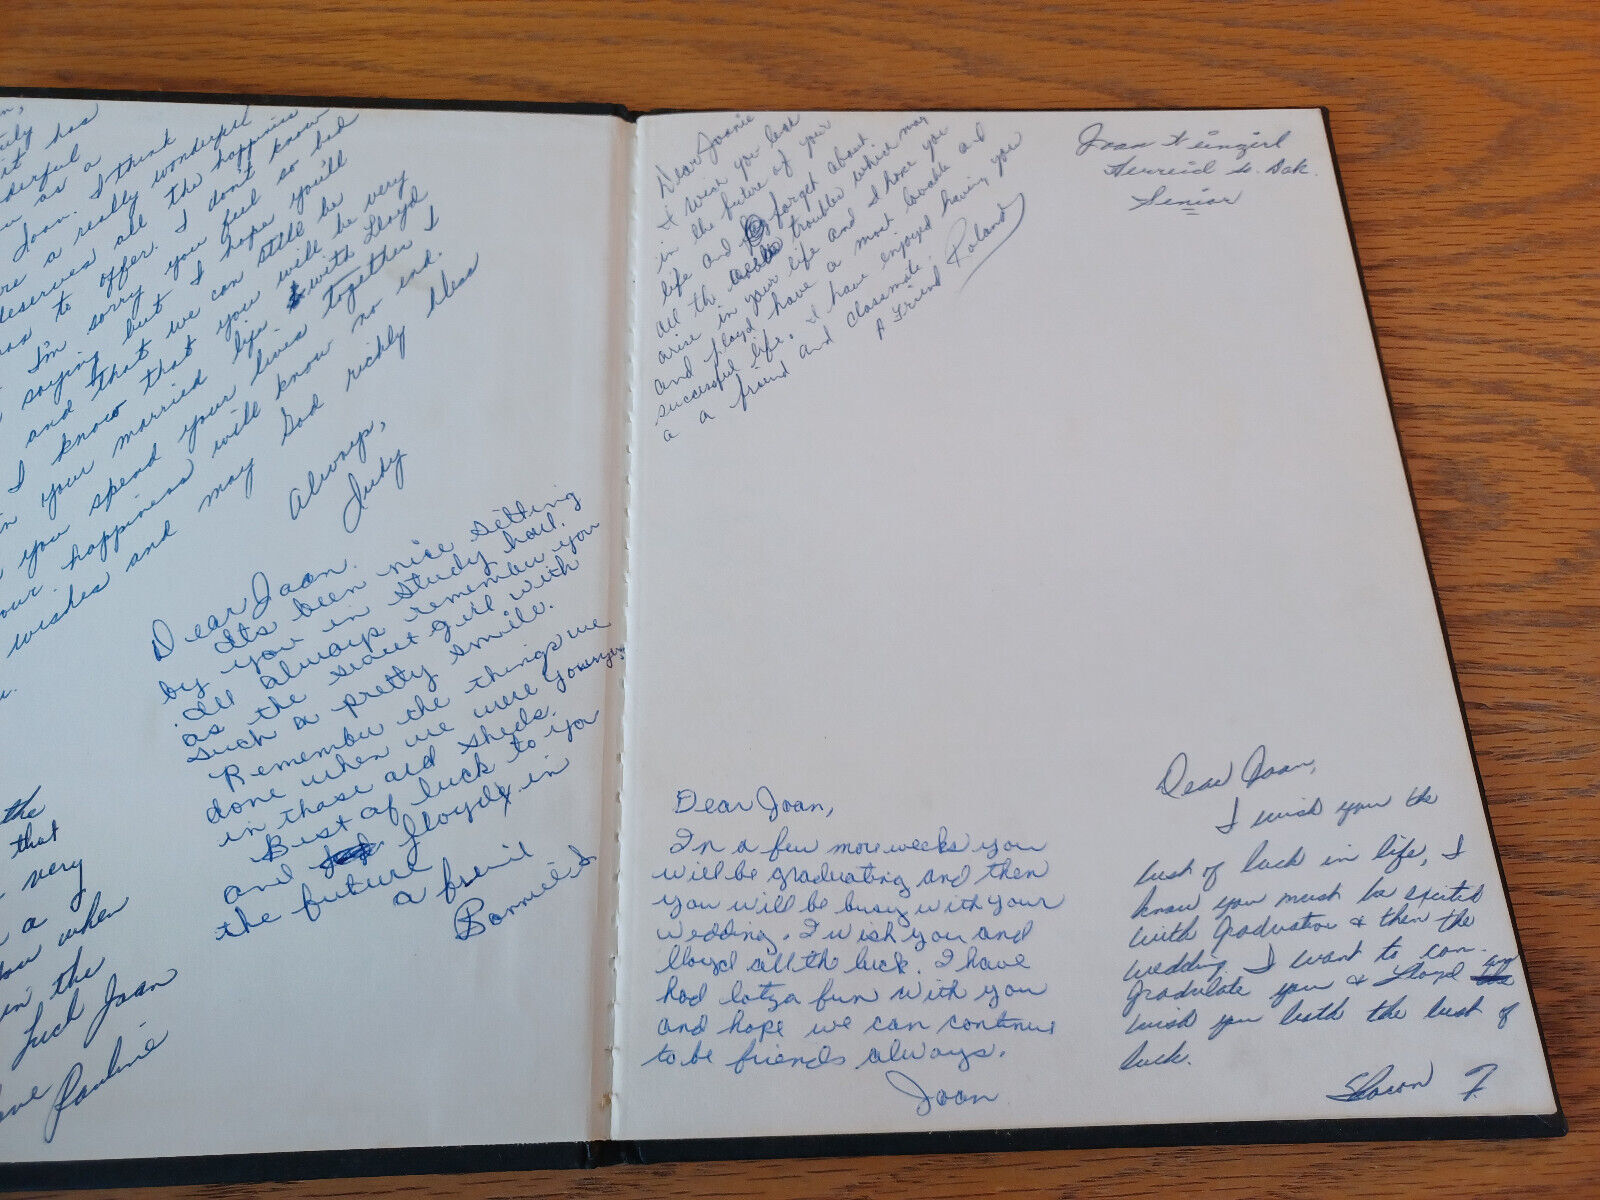 n,
it has
derful
as a
Joan. I think
re a really wonderful
deserves all the happiness
has to offer. I don't know
I'm sorry you feel so bad
saying but I hope you'll
and that we can still be
I know that you will be very
in your married life with Lloyd
you spend your lives together I
our happiness will know no end.
wishes and may God richly bless
u.
Always,
Judy
Dear Joan.
Its been nice setting
by you in study hall.
I'll always remember you
as the sweet girl with
such a pretty smile.
Remember the things we
done when we were younger
in those old sheds.
Best of luck to you
and Lloyd in
the future
a friend
Bonnie
the
that
very
a
when
in the
Luck Joan
Pauline
Dear Joanie
I wish you best
in the future of your
life and forget about
all the troubles which may
arise in your life and I hope you
and Lloyd have a most lovable and
successful life. I have enjoyed having you
a a friend and classmate.
A Friend Roland
Joan Heinzirl
Herreid So. Dak.
Senior
Dear Joan,
In a few more weeks you
will be graduating and then
you will be busy with your
wedding. I wish you and
Lloyd all the luck. I have
had lotza fun with you
and hope we can continue
to be friends always.
Joan
Dear Joan,
I wish you the
best of luck in life, I
know you must be excited
with graduation & then the
wedding. I want to con-
gradulate you & Lloyd and
wish you both the best of
luck.
Sharon F.